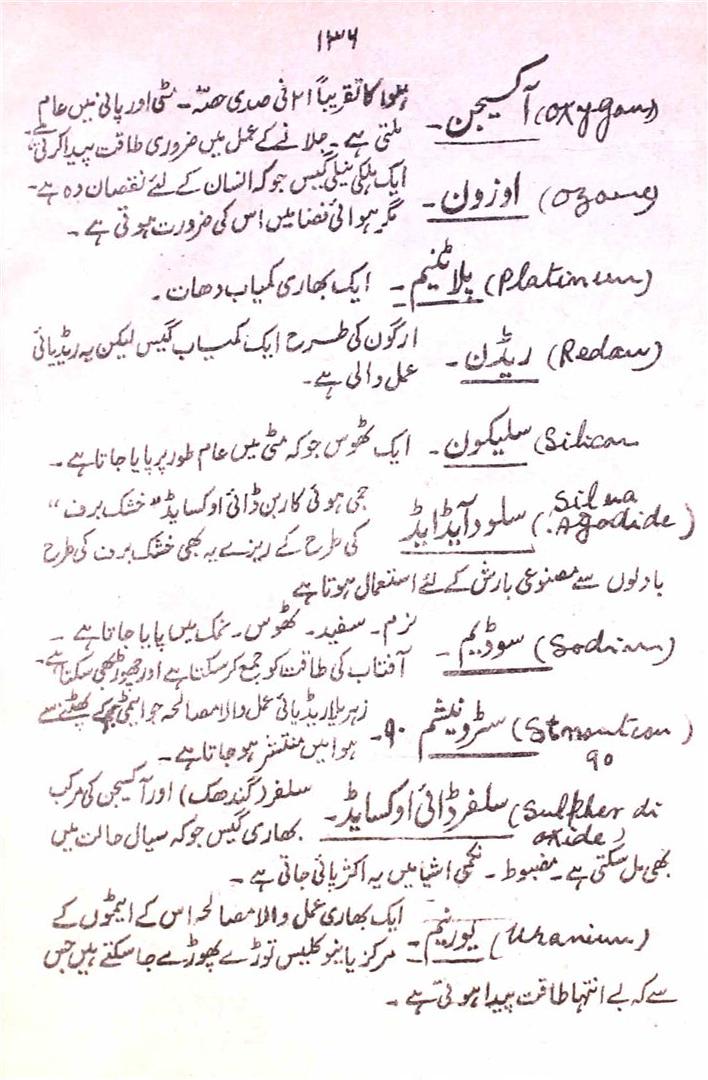 ۱۳۶
آکسیجن (Oxygan) - ہوا کا تقریباً ۲۱ فی صدی حصہ - مٹی اور پانی میں عام
ملتی ہے - جلانے کے عمل میں ضروری طاقت پیدا کرتی ہے
اوزون (Ozone) - ایک ہلکی نیلی گیس جو کہ انسان کے لئے نقصان دہ ہے -
مگر ہوائی فضا میں اس کی ضرورت ہوتی ہے -
پلاٹنیم (Platinum) - ایک بھاری کمیاب دھات -
ریڈن (Redan) - ارگون کی طرح ایک کمیاب گیس لیکن یہ ریڈیائی
عمل والی ہے -
سلیکون (Silican - ایک ٹھوس جو کہ مٹی میں عام طور پر پایا جاتا ہے -
سلور آیڈایڈ (Silva Agodide) جمی ہوئی کاربن ڈائی اوکسایڈ "خشک برف"
کی طرح کے ریزے یہ بھی خشک برف کی طرح
بادلوں سے مصنوعی بارش کے لئے استعمال ہوتا ہے
سوڈیم (Sodium) - نرم - سفید - ٹھوس - نمک میں پایا جاتا ہے -
آفتاب کی طاقت کو جمع کر سکتا ہے اور چھوڑ بھی سکتا ہے -
سٹرونیشم ۹۰ (Stroution 90) - زہریلا ریڈیائی عمل والا مصالحہ جو ایٹمی بم کے پھٹنے سے
ہوا میں منتشر ہو جاتا ہے -
سلفر ڈائی اوکسایڈ (Sulpher di oxide) - سلفر (گندھک) اور آکسیجن کی مرکب
بھاری گیس جو کہ سیال حالت میں
بھی مل سکتی ہے - مضبوط - نکمی اشیا میں یہ اکثر پائی جاتی ہے -
یورنیم (Uranium) - ایک بھاری عمل والا مصالحہ اس کے ایٹموں کے
مرکز یا نیوکلیس توڑے پھوڑے جا سکتے ہیں جس
سے کہ بے انتہا طاقت پیدا ہوتی ہے -